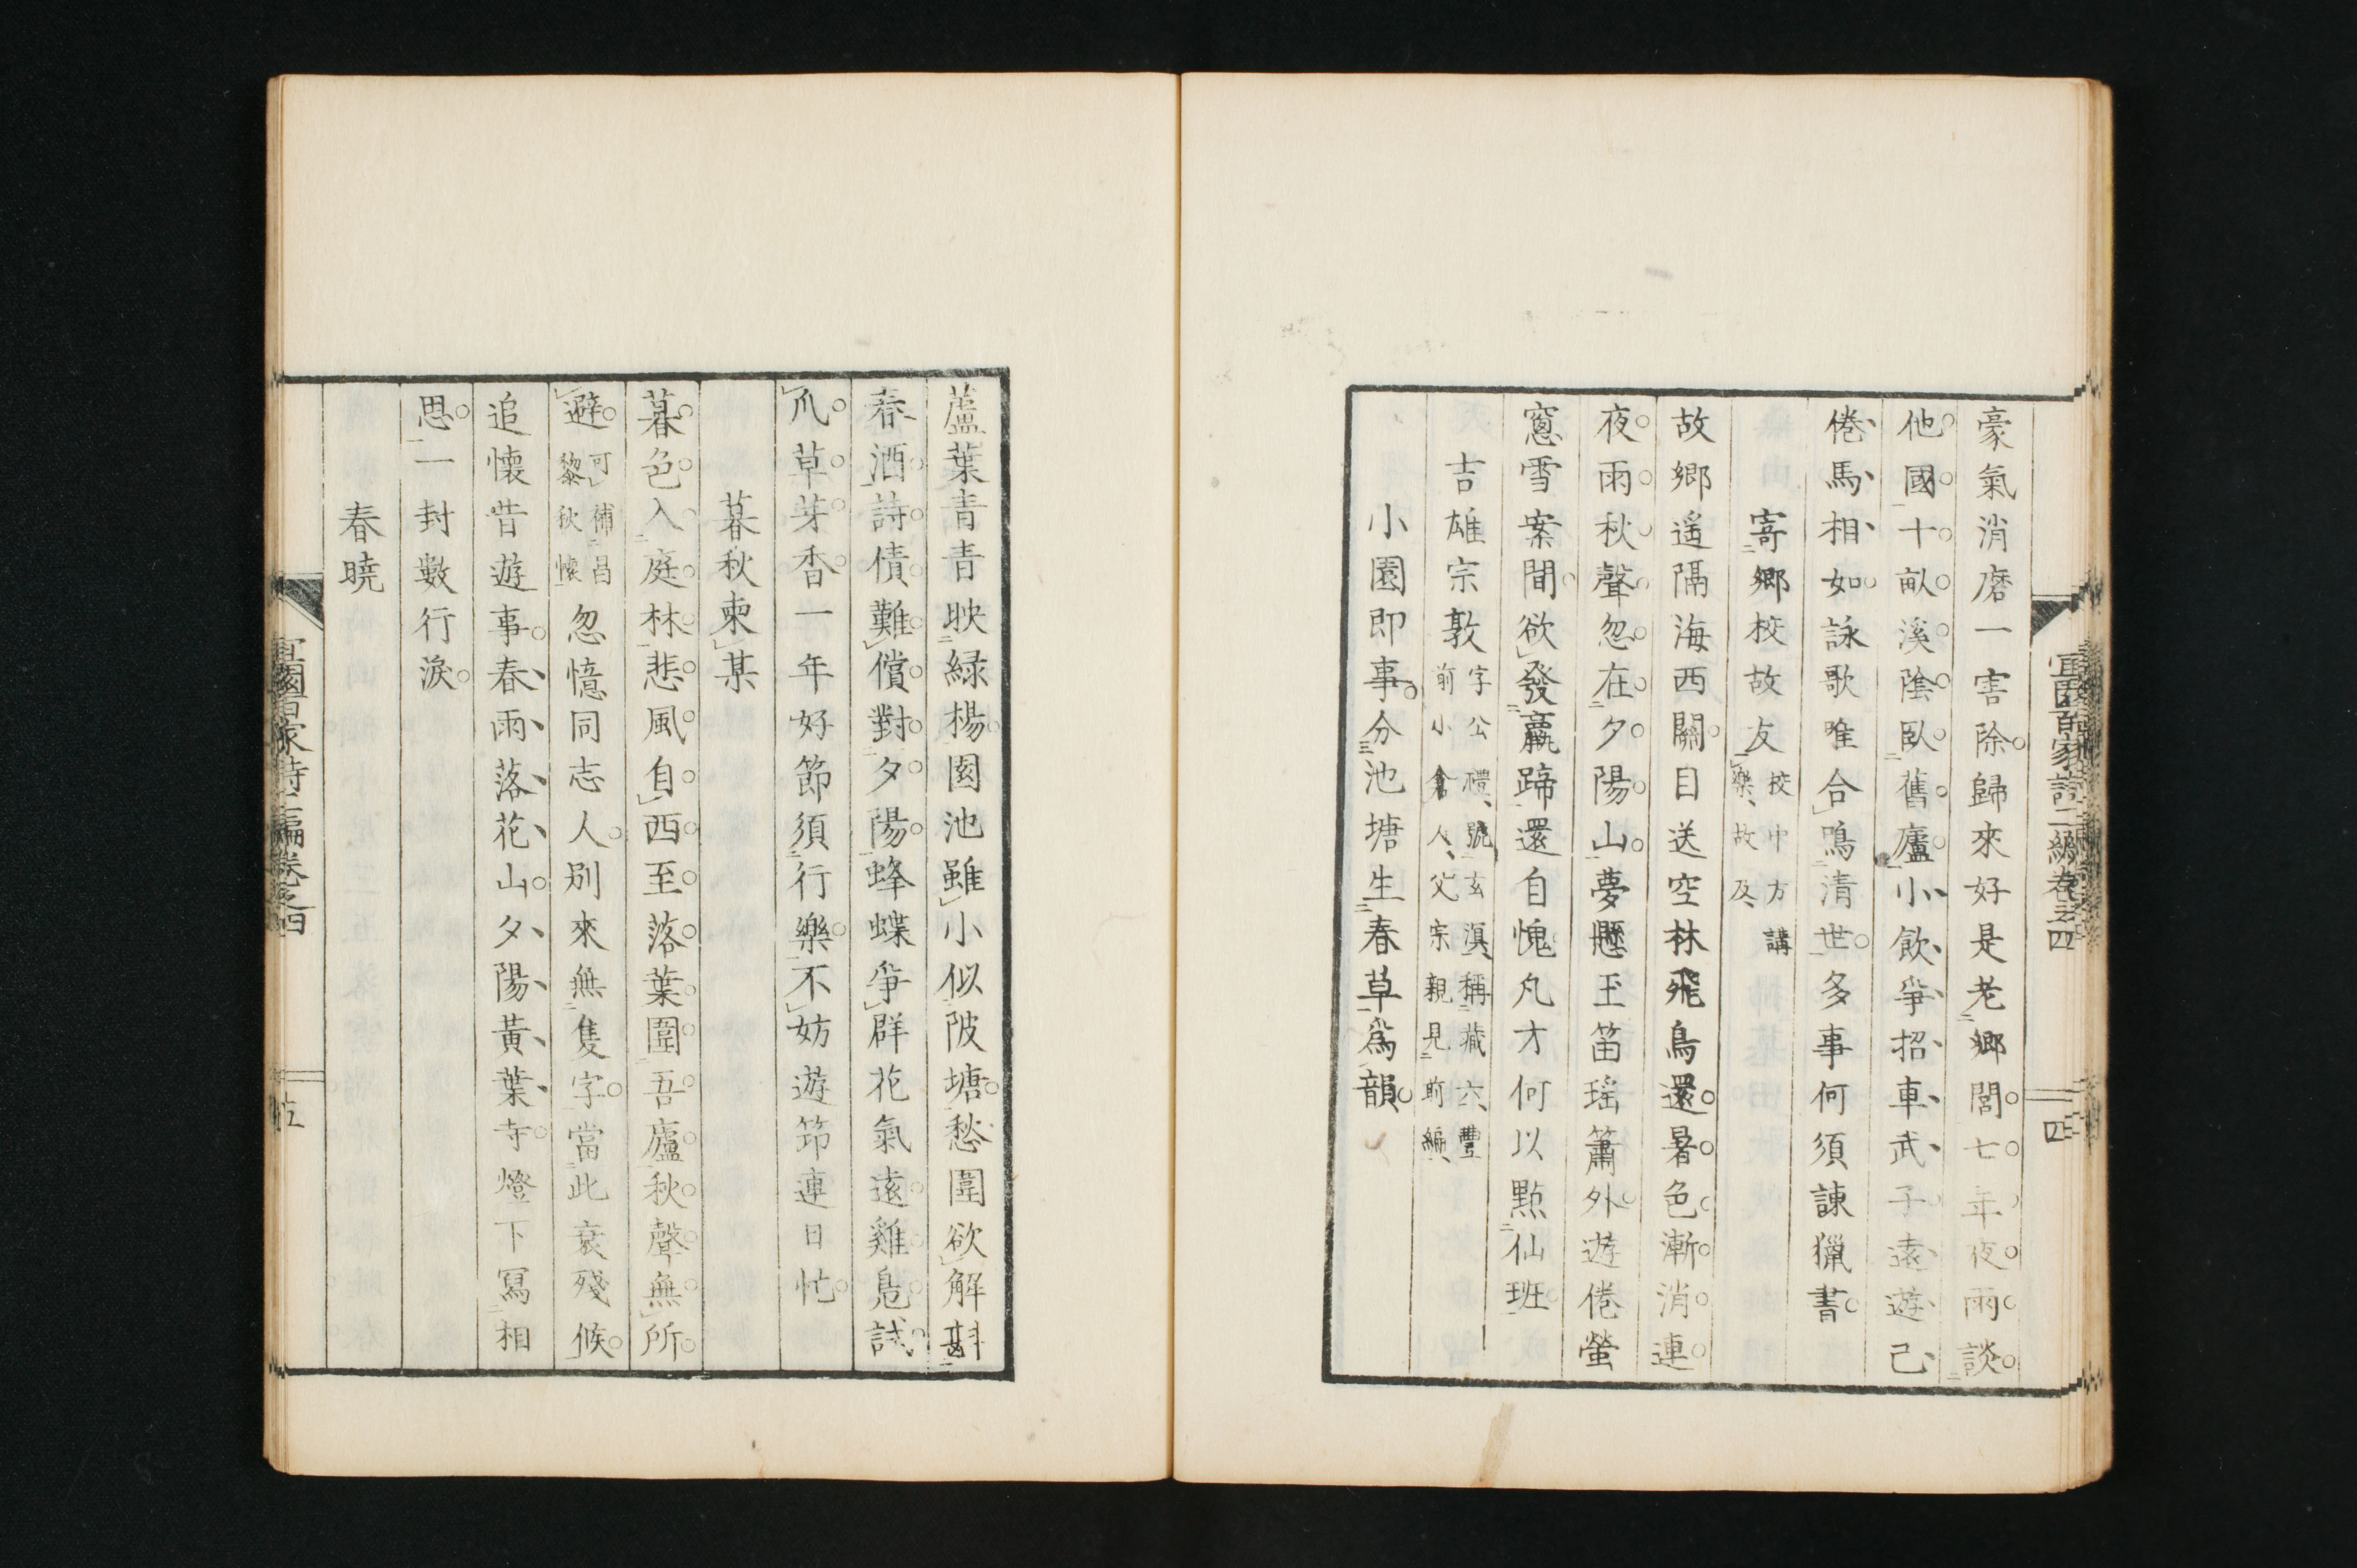 豪氣消磨一害除歸來好是老鄉閭七年夜雨談
他國十畝溪陰臥舊廬小飲爭招車武子遠遊已
倦馬相如詠歌唯合鳴清世多事何須諫獵書
寄鄉校故友校中方講樂故及
故鄉遥隔海西關目送空林飛鳥還暑色漸消連
夜雨秋聲忽在夕陽山夢懸玉笛瑤簫外遊倦螢
窻雪案間欲發驫蹄還自愧凡才何以點仙班
吉雄宗敦字公禮號玄滇稱藏六豐前小倉人父宗親見前編
小園即事分池塘生春草爲韻
蘆葉青青映緑楊園池雖小似陂塘愁圍欲解斟
春酒詩債難償對夕陽蜂蝶爭群花氣遠雞鳧試
爪草芽香一年好節須行樂不妨遊筇連日忙
暮秋柬某
暮色入庭林悲風自西至落葉圍吾廬秋聲無所
避可補昌黎秋懷忽憶同志人別來無隻字當此衰殘候
追懷昔遊事春雨落花山夕陽黃葉寺燈下冩相
思一封數行淚
春曉
宜園百家詩二編卷之四
四
宜園百家詩二編卷之四
五